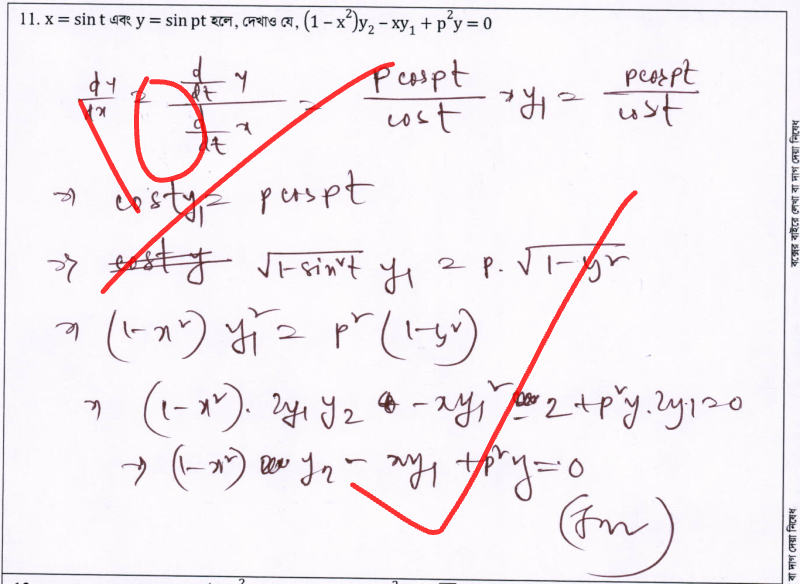 11. x = sin t এবং y = sin pt হলে, দেখাও যে, (1 − x²)y₂ − xy₁ + p²y = 0
dy/dx = (d/dt y)/(d/dt x) = p cos pt/cos t ⇒ y₁ = p cos pt/cos t
⇒ cos t y₁ = p cos pt
⇒ √(1−sin²t) y₁ = p. √(1−y²)
⇒ (1−x²) y₁² = p² (1−y²)
⇒ (1−x²). 2y₁ y₂ − xy₁² 2 + p²y. 2y₁ = 0
⇒ (1−x²) y₂ − xy₁ + p²y = 0
বক্সের বাইরে লেখা বা দাগ দেয়া নিষেধ
বা দাগ দেয়া নিষেধ